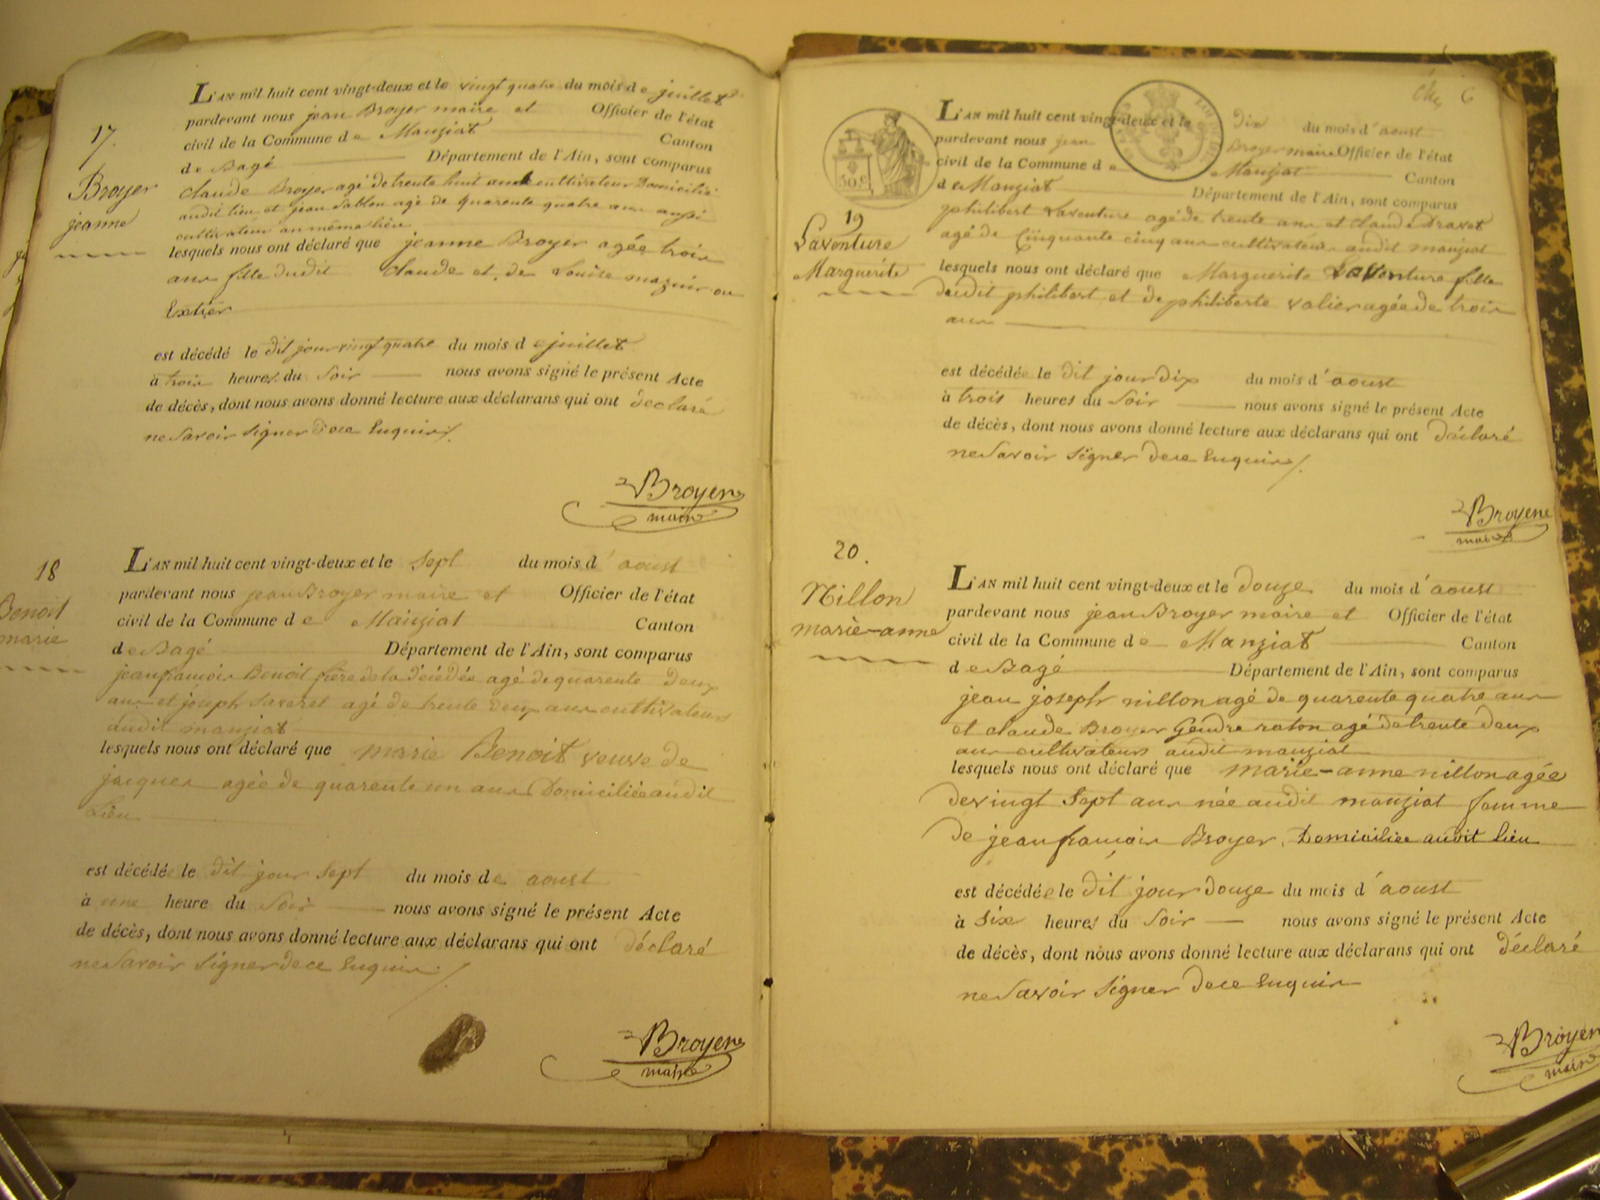 17.
Broyer
jeanne
L'AN mil huit cent vingt-deux et le vingt quatre du mois de juillet
pardevant nous jean Broyer maire et Officier de l'état
civil de la Commune de Manziat Canton
de Bagé Département de l'Ain, sont comparus
Claude Broyer agé de trente huit ans cultivateur Domicilié
audit lieu et jean Sablon agé de quarente quatre ans aussi
cultivateur au même lieu
lesquels nous ont déclaré que jeanne Broyer agée trois
ans fille dudit Claude et de Louise
est décédé le dit jour vingt quatre du mois de juillet
à trois heures du Soir nous avons signé le présent Acte
de décès, dont nous avons donné lecture aux déclarans qui ont déclaré
ne Savoir Signer de ce Enquis
Broyer
maire
18
Benoit
marie
L'AN mil huit cent vingt-deux et le Sept du mois d'aoust
pardevant nous jean Broyer maire et Officier de l'état
civil de la Commune de Manziat Canton
de Bagé Département de l'Ain, sont comparus
jean françois Benoit frère de la décédée agé de quarente deux
ans et joseph agé de trente deux ans cultivateurs
audit manziat
lesquels nous ont déclaré que marie Benoit veuve de
jacques agée de quarente un ans Domiciliée audit
Lieu
est décédée le dit jour Sept du mois de aoust
à une heure du Soir nous avons signé le présent Acte
de décès, dont nous avons donné lecture aux déclarans qui ont déclaré
ne Savoir Signer de ce Enquis
Broyer
maire
6
50 c.
19
Laventure
Marguerite
L'AN mil huit cent vingt-deux et le dix du mois d'aoust
pardevant nous jean Broyer maire Officier de l'état
civil de la Commune de Manziat Canton
de Manziat Département de l'Ain, sont comparus
philibert Laventure agé de trente ans et Claude Dravet
agé de Cinquante cinq ans cultivateurs audit manziat
lesquels nous ont déclaré que Marguerite Laventure fille
dudit philibert et de philiberte valier agée de trois
ans
est décédée le dit jour dix du mois d'aoust
à trois heures du Soir nous avons signé le présent Acte
de décès, dont nous avons donné lecture aux déclarans qui ont déclaré
ne Savoir Signer de ce Enquis
Broyer
maire
20.
Nillon
marie-anne
L'AN mil huit cent vingt-deux et le douze du mois d'aoust
pardevant nous jean Broyer maire et Officier de l'état
civil de la Commune de Manziat Canton
de Bagé Département de l'Ain, sont comparus
jean joseph nillon agé de quarente quatre ans
et claude Broyer Gendre raton agé de trente deux
ans cultivateurs audit manziat
lesquels nous ont déclaré que marie-anne nillon agée
de vingt Sept ans née audit manziat femme
de jean françois Broyer Domiciliée audit lieu
est décédée le dit jour douze du mois d'aoust
à Six heures du Soir nous avons signé le présent Acte
de décès, dont nous avons donné lecture aux déclarans qui ont déclaré
ne Savoir Signer de ce Enquis
Broyer
maire